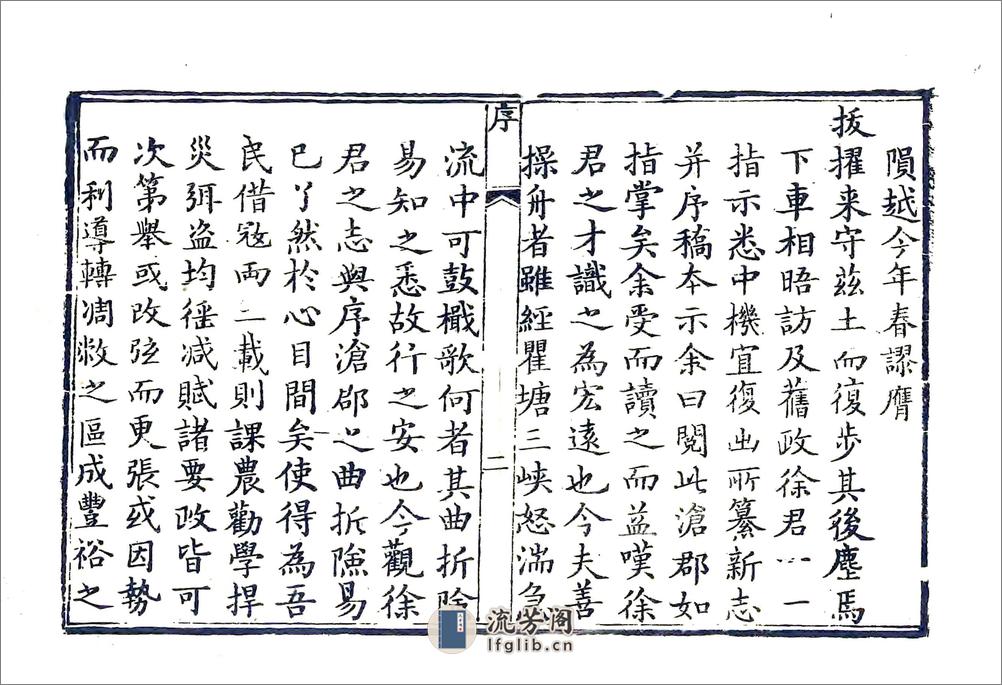 隕越今年春謬膺
拔擢来守兹土而復步其後塵焉
下車相晤訪及舊政徐君一一
指示悉中機宜復出所纂新志
并序稿本示余曰閱此滄郡如
指掌矣余受而讀之而益嘆徐
君之才識之為宏遠也今夫善
操舟者雖經瞿塘三峡怒湍急
序
二
流中可鼓檝歌何者其曲折險
易知之悉故行之安也今觀徐
君之志與序滄郡之曲折險易
已了然於心目間矣使得為吾
民借寇兩二載則課農勸學捍
災弭盗均徭减賦諸要政皆可
次第舉或改弦而更張或因勢
而利導轉凋敝之區成豐裕之
流芳阁
lfglib.cn